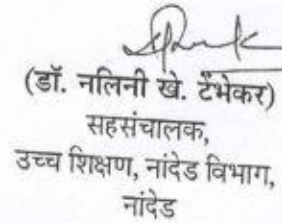 (डॉ. नलिनी खे. टेंभेकर)
सहसंचालक,
उच्च शिक्षण, नांदेड विभाग,
नांदेड